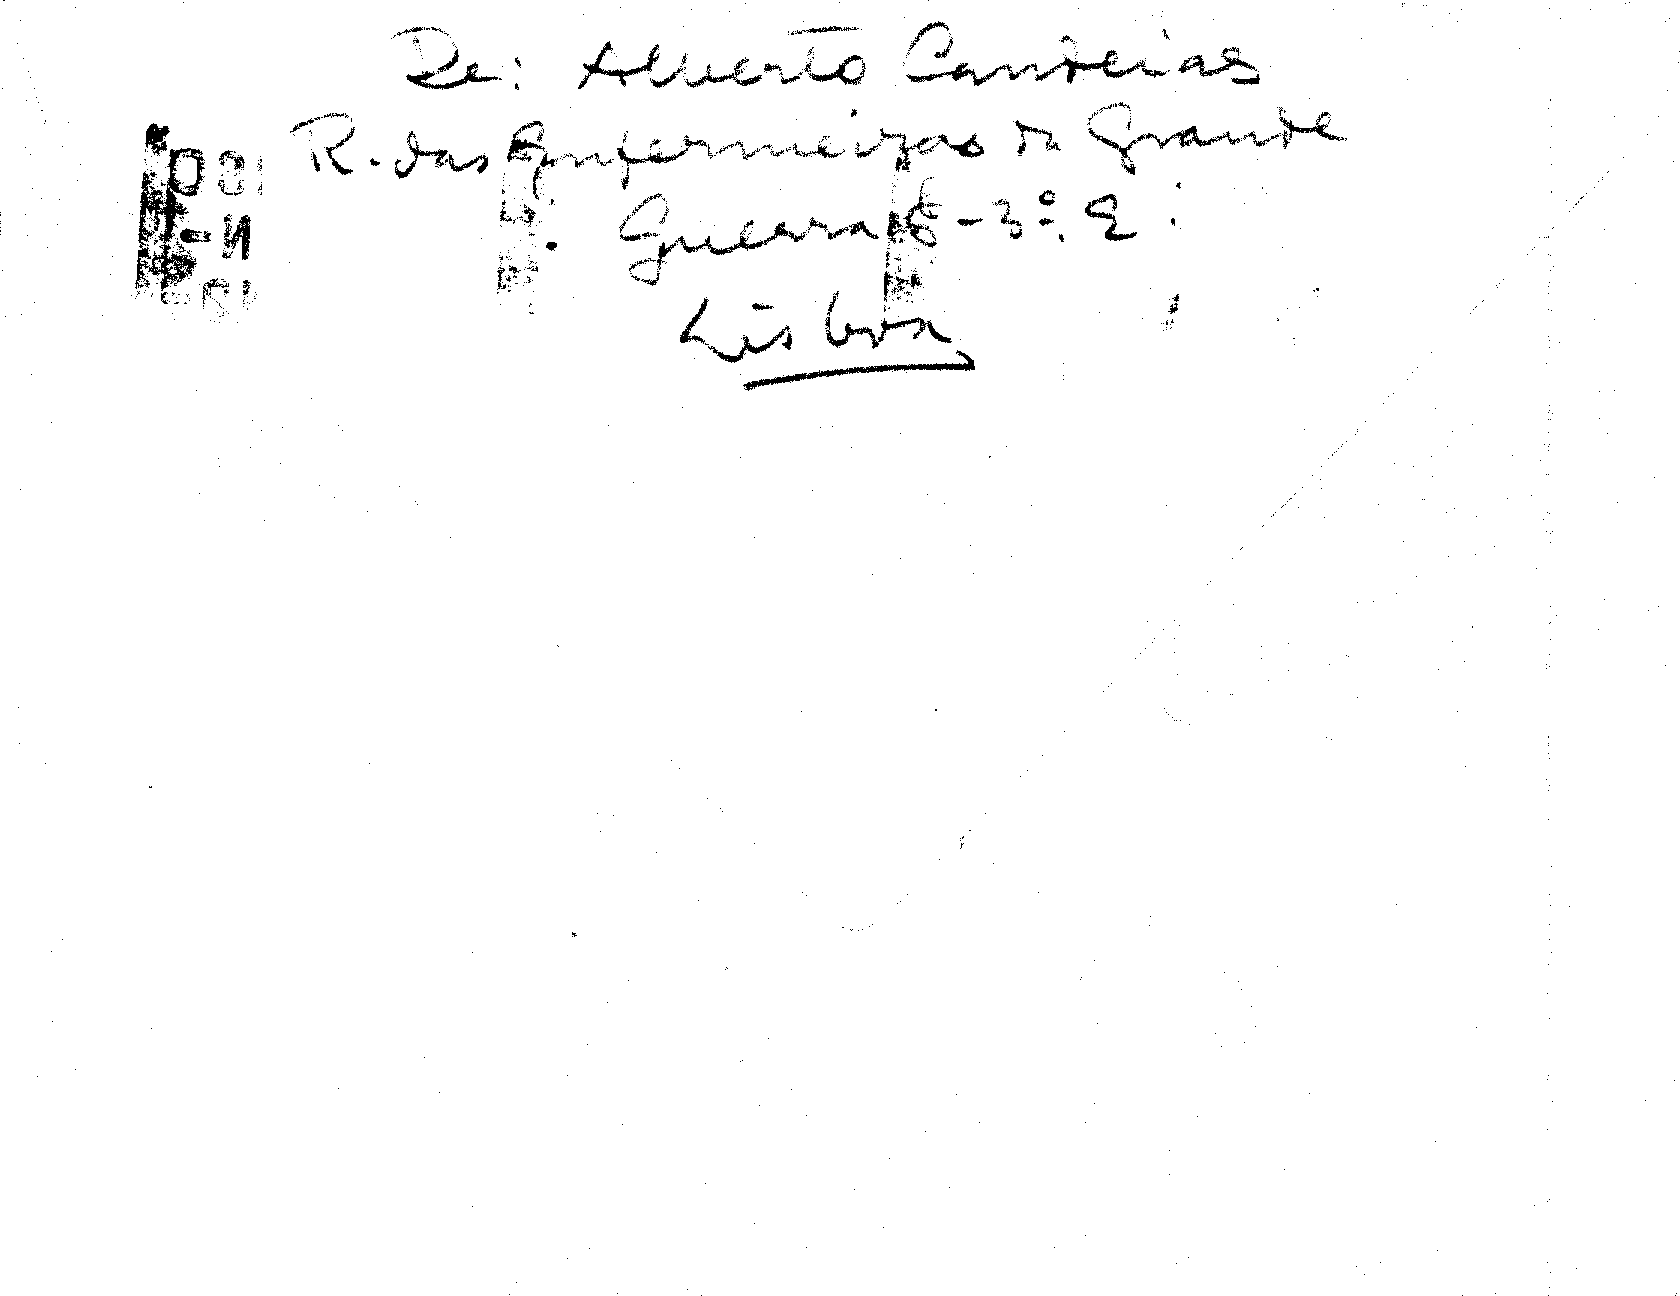 De: Alberto Candeias
R. das Enfermeiras da Grande
Guerra 6 - 3º. E
Lisboa